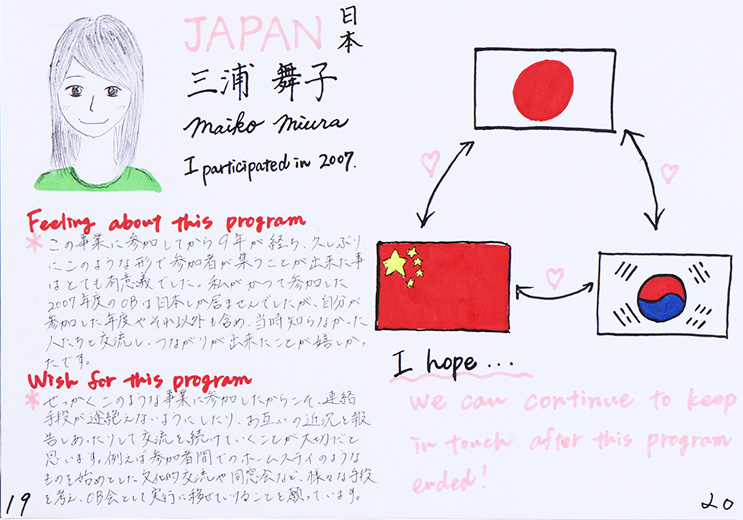 JAPAN 日本
三浦 舞子
Maiko Miura
I participated in 2007.
Feeling about this program
* この事業に参加してから9年が経ち、久しぶり
にこのような形で参加者が集うことが出来た事
はとても有意義でした。私がかつて参加した
2007年度のOBは日本しか居ませんでしたが、自分が
参加した年度やそれ以外も含め、当時知らなかった
人たちと交流し、つながりが出来たことが嬉しかっ
たです。
Wish for this program
* せっかくこのような事業に参加したからこそ、連絡
手段が途絶えないようにしたり、お互いの近況を報
告しあったりして交流を続けていくことが大切だと
思います。例えば参加者間でのホームステイのような
ものを始めとした文化的交流や同窓会など、様々な手段
を考え、OB会として実行に移せていけることを願っています。
19
I hope...
We can continue to keep
in touch after this program
ended!
20